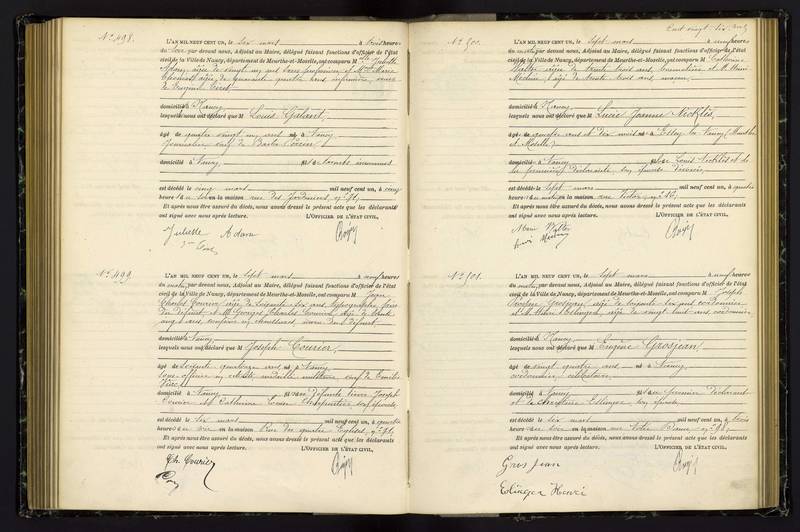 N° 498.
L'AN MIL NEUF CENT UN, le six mars à trois heures
du soir par devant nous, Adjoint au Maire, délégué faisant fonctions d'officier de l'état
civil de la Ville de Nancy, département de Meurthe-et-Moselle, ont comparu M Juliette
Adam, âgée de vingt un ans sans profession et M Marie
âgée de quarante quatre ans
domiciliés à Nancy
lesquels nous ont déclaré que M Louis Galant
âgé de quatre vingt un ans né à Nancy
journalier, veuf de Barbe
domicilié à Nancy
est décédé le cinq mars mil neuf cent un, à cinq
heures du soir en la maison rue des Jardiniers, n° 91,
Et après nous être assuré du décès, nous avons dressé le présent acte que les déclarants
ont signé avec nous après lecture. L'OFFICIER DE L'ÉTAT CIVIL,
Juliette Adam
N° 499
L'AN MIL NEUF CENT UN, le sept mars à neuf heures
du matin, par devant nous, Adjoint au Maire, délégué faisant fonctions d'officier de l'état
civil de la Ville de Nancy, département de Meurthe-et-Moselle, ont comparu M Jean
Charles Courier âgé de soixante six ans, typographe, frère
du défunt et M Georges Charles Courier, âgé de trente
cinq ans, neveu du défunt
domiciliés à Nancy
lesquels nous ont déclaré que M Joseph Courier,
âgé de soixante quatorze ans né à Nancy
sous officier en retraite médaillé militaire, veuf de Emilie
domicilié à Nancy fils de défunts Pierre Joseph
Courier et Catherine son épouse
est décédé le six mars mil neuf cent un, à quatre
heures du soir en la maison Rue des quatre Eglises, n° 91,
Et après nous être assuré du décès, nous avons dressé le présent acte que les déclarants
ont signé avec nous après lecture. L'OFFICIER DE L'ÉTAT CIVIL,
Ch. Courier
Cent vingt-six
N° 500.
L'AN MIL NEUF CENT UN, le sept mars à neuf heures
du matin par devant nous, Adjoint au Maire, délégué faisant fonctions d'officier de l'état
civil de la Ville de Nancy, département de Meurthe-et-Moselle, ont comparu M Catherine
âgée de trente huit ans, et M Henri
âgé de trente trois ans, maçon,
domiciliés à Nancy
lesquels nous ont déclaré que M Lucie Jeanne Nicklès,
âgée de quatre ans et dix mois née à Essey les Nancy (Meurthe
et Moselle)
domiciliée à Nancy fille de Louis Nicklès et de
la première déclarante son épouse
est décédée le sept mars mil neuf cent un, à quatre
heures du matin en la maison rue
Et après nous être assuré du décès, nous avons dressé le présent acte que les déclarants
ont signé avec nous après lecture. L'OFFICIER DE L'ÉTAT CIVIL,
N° 501.
L'AN MIL NEUF CENT UN, le sept mars à neuf heures
du matin, par devant nous, Adjoint au Maire, délégué faisant fonctions d'officier de l'état
civil de la Ville de Nancy, département de Meurthe-et-Moselle, ont comparu M Joseph
Grosjean, âgé de soixante six ans cordonnier
et M Henri Eslinger, âgé de vingt huit ans, cordonnier
domiciliés à Nancy
lesquels nous ont déclaré que M Eugène Grosjean
âgé de vingt quatre ans né à Nancy,
cordonnier, célibataire,
domicilié à Nancy fils du premier déclarant
et de Christine Eslinger son épouse,
est décédé le six mars mil neuf cent un, à trois
heures du soir en la maison rue Notre Dame, n°
Et après nous être assuré du décès, nous avons dressé le présent acte que les déclarants
ont signé avec nous après lecture. L'OFFICIER DE L'ÉTAT CIVIL,
Gros jean
Eslinger Henri